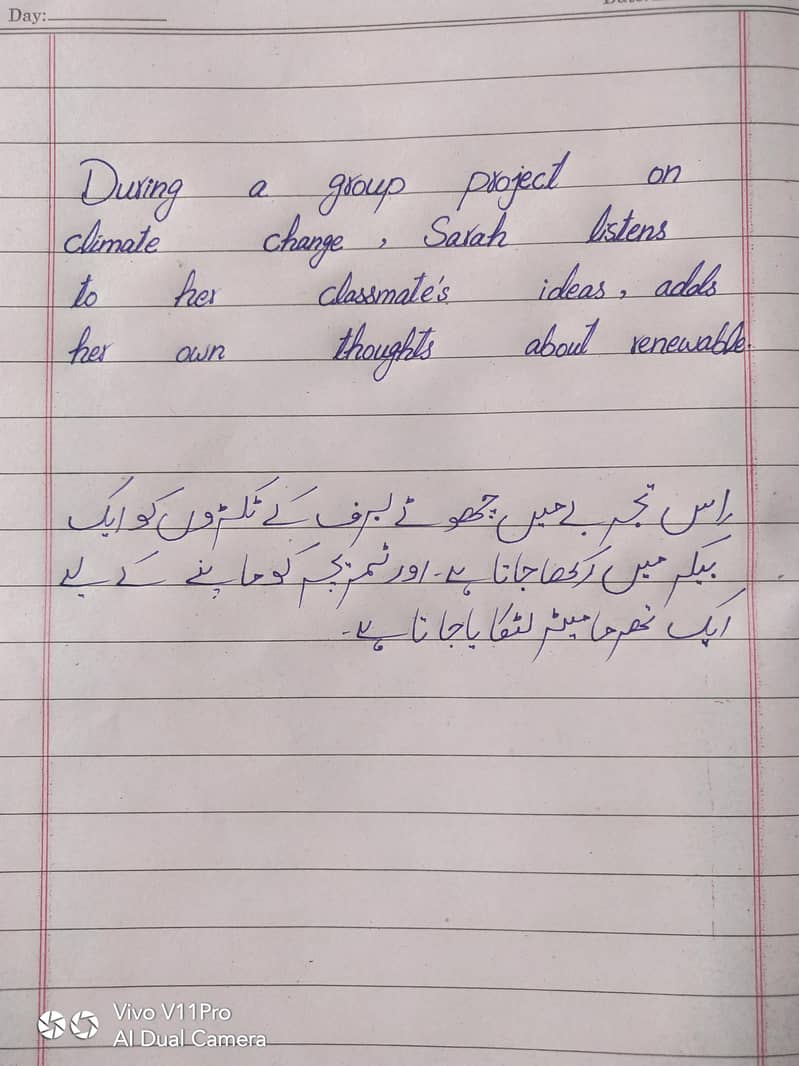 Day:
During a group project on
climate change, Sarah listens
to her classmate's ideas, adds
her own thoughts about renewable.
اس تجربے میں چھوٹے برف کے ٹکڑوں کو ایک
بیکر میں رکھا جاتا ہے۔ اور ٹمپریچر کو ماپنے کے لیے
ایک تھرمامیٹر لٹکایا جاتا ہے۔
Vivo V11Pro
AI Dual Camera